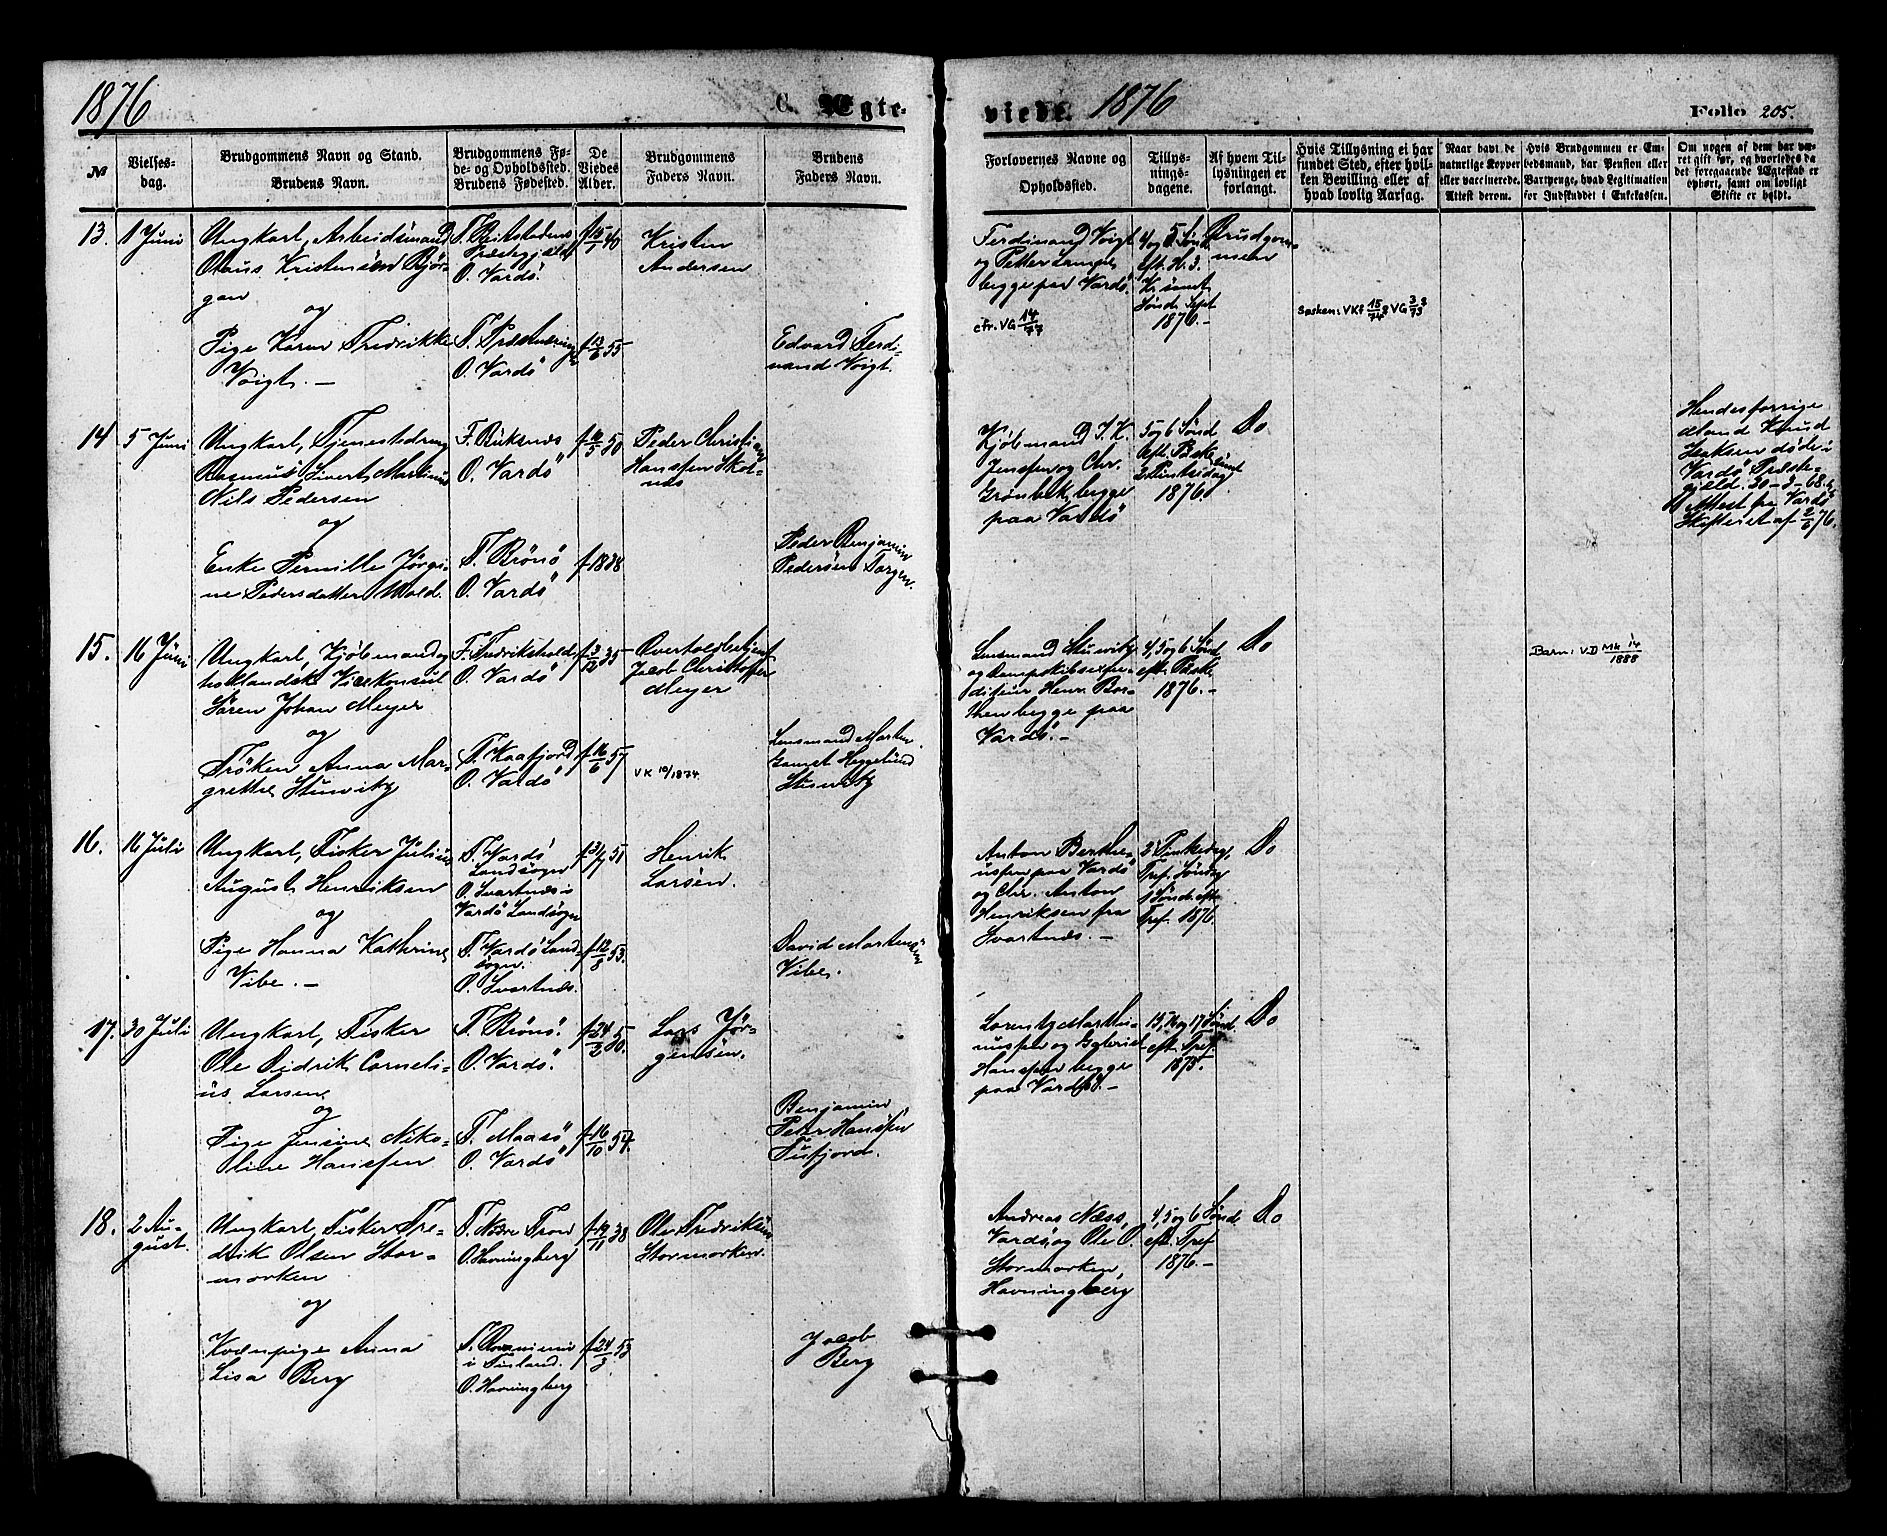 1876
C. Ægte-
viede. 1876
Folio 205.
№
Vielses-
dag.
Brudgommens Navn og Stand.
Brudens Navn.
Brudgommens Fø-
de- og Opholdssted.
Brudens Fødested.
De
Viedes
Alder.
Brudgommens
Faders Navn.
Brudens
Faders Navn.
Forlovernes Navne og
Opholdssted.
Tillys-
nings-
dagene.
Af hvem Til-
lysningen er
forlangt.
Hvis Tillysning ei har
fundet Sted, efter hvil-
ken Bevilling eller af
hvad lovlig Aarsag.
Naar havt de
naturlige Kopper
eller vaccinerede.
Attest derom.
Hvis Brudgommen er Em-
bedsmand, har Pension eller
Vartpenge, hvad Legitimation
for Indskuddet i Enkekassen.
Om nogen af dem har væ-
ret gift før, og hvorledes da
det foregaaende Ægteskab er
ophørt, samt om lovligt
Skifte er holdt.
13. 1 Juni
Ungkarl, Arbeidsmand
Olaus Kristensen Bjør-
gan
og
Pige Karen Fredrikke
Voigt. —
Præstegjeld
O. Vardö.
f 15/7 40
O. Vardö
f 13/6 55
Kristen
Andersen
Edvard Ferdi-
nand Voigt.
Ferdinand Voigt
og Petter
begge paa Vardö.
cfr. VG 14/77
4 og 5 Sønd
eft. H. 3.
K. samt
Sønd. Sept
1876. —
Brudgom-
men
Søsken: VKf 15/74 & VG 3/73
14 5 Juni
Ungkarl, Tjenestedreng
Rasmus Sivert Martinus
Nils Pedersen
og
Enke Pernille Jørgi-
ne Pedersdatter Wold.
O. Vardö
F. Brönö
O. Vardö
f 1838
Peder Christian
Hanssen Skol-
nes
Peder Benjamin
Pedersen Torgen.
Kjøbmand J. K.
Jenssen og Chr.
Grönbek, begge
paa Vardö
5 og 6 Sønd
eft. Paske samt
2 Pintsedag
1876.
Do
Hendes forrige
Mand Knud
Isaksen døde i
Vardö Præste-
gjeld. 30-3-68.
Attest fra Vardö
Skifteret af 2/6 76.
15. 16 Juni
Ungkarl, Kjøbmand og
hollandsk Vicekonsul
Sören Johan Meyer
og
Frøken Anna Mar-
grethe Stuwitz
F. Fredrikshald
O. Vardö
f 3/12 35
F. Kaafjord
O. Vardö
f 16/6 57
Overtoldbetjent
Jacob Christoffer
Meyer
VK 10/1874.
Lensmand Morten
Gamst Heggelund
Stuwitz
Lensmand Stuwitz
og Dampskibsexpe-
ditör Henr. Bor-
then begge paa
Vardö. —
4, 5 og 6 Sønd
eft. Paske
1876. —
Do
Barn: VD Mk 14/1888
16. 16 Juli
Ungkarl, Fisker Julius
August Henriksen
og
Pige Hanna Kathrine
Vibe. —
F. Vardö
Landsogn
O. Svartnæs i
Vardö Landsogn
F. Vardö Land-
sogn.
O. Svartnæs.
f 12/8 53.
Henrik
Larsen.
David Martensen
Vibe.
Anton Berthe-
ussen paa Vardö
og Chr. Anton
Henriksen fra
Svartnæs. —
2 Pinsedag,
Tref. Søndag
1 Sønd. eft.
Tref. 1876.
Do
17. 30 Juli
Ungkarl, Fisker
Ole Didrik Corneli-
us Larsen
og
Pige Jensine Niko-
line Hanssen
F. Brönö.
O. Vardö.
f 24/2 50.
F. Maasö,
O. Vardö
f 16/10 54.
Lars Jør-
gensen.
Benjamin
Peter Hanssen
Tufjord.
Lorentz Marthi-
nussen og Gabriel
Hanssen begge
paa Vardö. —
15, 16 og 17 Sønd.
eft. Tref.
1875.
Do
18. 2 Au-
gust.
Ungkarl, Fisker Fre-
drik Olsen Stor-
morken
og
Kvænpige Anna
Lisa Berg
O. Havningberg
f 19/11 38
i Finland.
O. Havningberg
f 24/3 53
Ole Fredriksen
Stormorken.
Jacob
Berg
Andreas Næss,
Vardö og Ole O.
Stormorken,
Havningberg
4, 5 og 6 Sønd.
eft. Tref
1876. —
Do